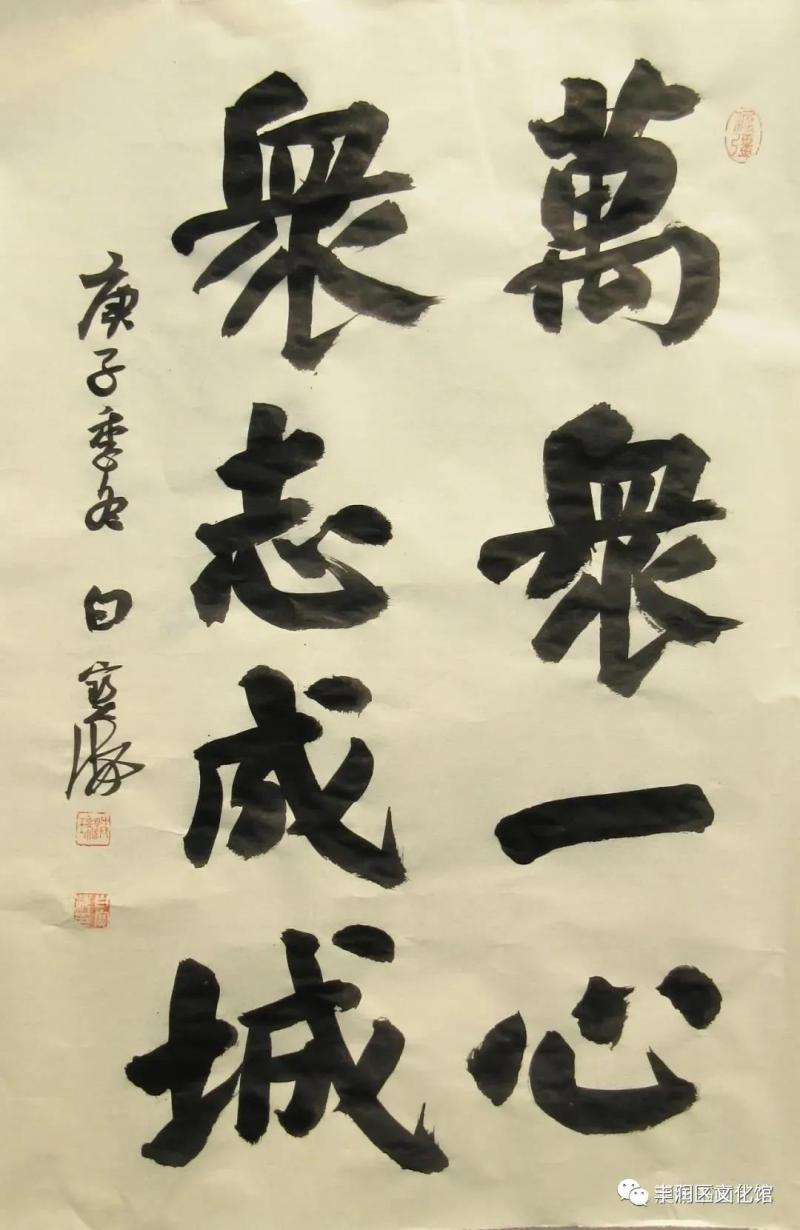 萬衆一心
衆志成城
庚子季冬 白寶海
丰润区文化馆